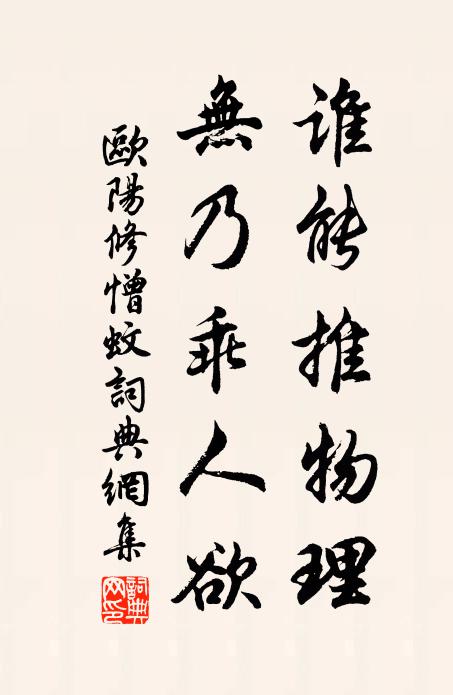 誰能推物理
無乃乖人欲
歐陽修憎蚊詞典網集
詞典網印